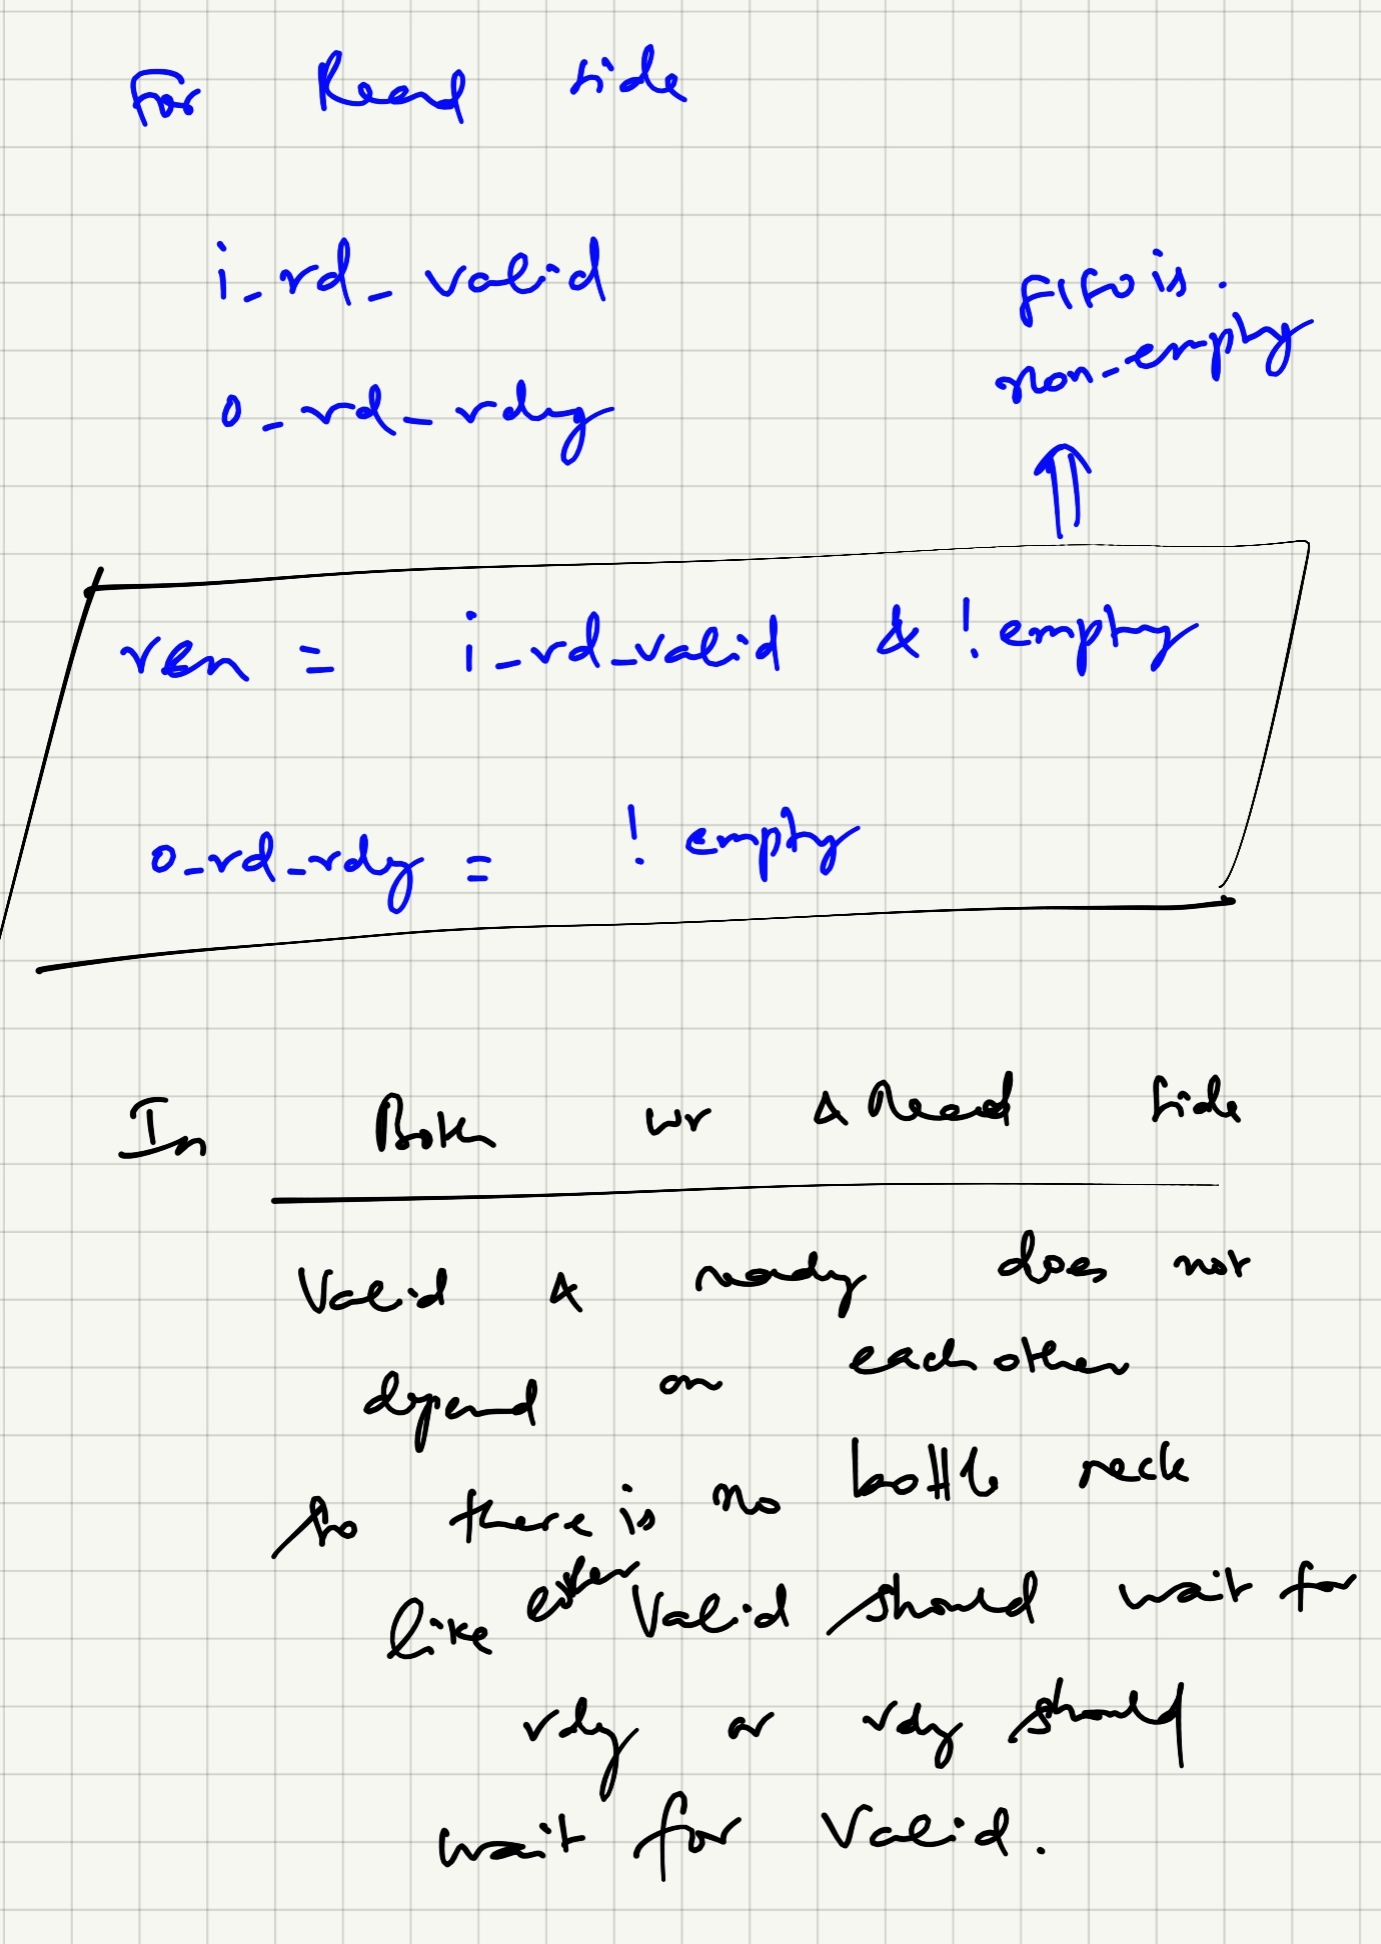 For Read side
i_rd_valid
o_rd_rdy
FIFO is.
non-empty
ren = i_rd_valid & ! empty
o_rd_rdy = ! empty
In Both wr & Read side
Valid & ready does not
depend on each other
so there is no bottle neck
like either Valid should wait for
rdy or rdy should
wait for Valid.